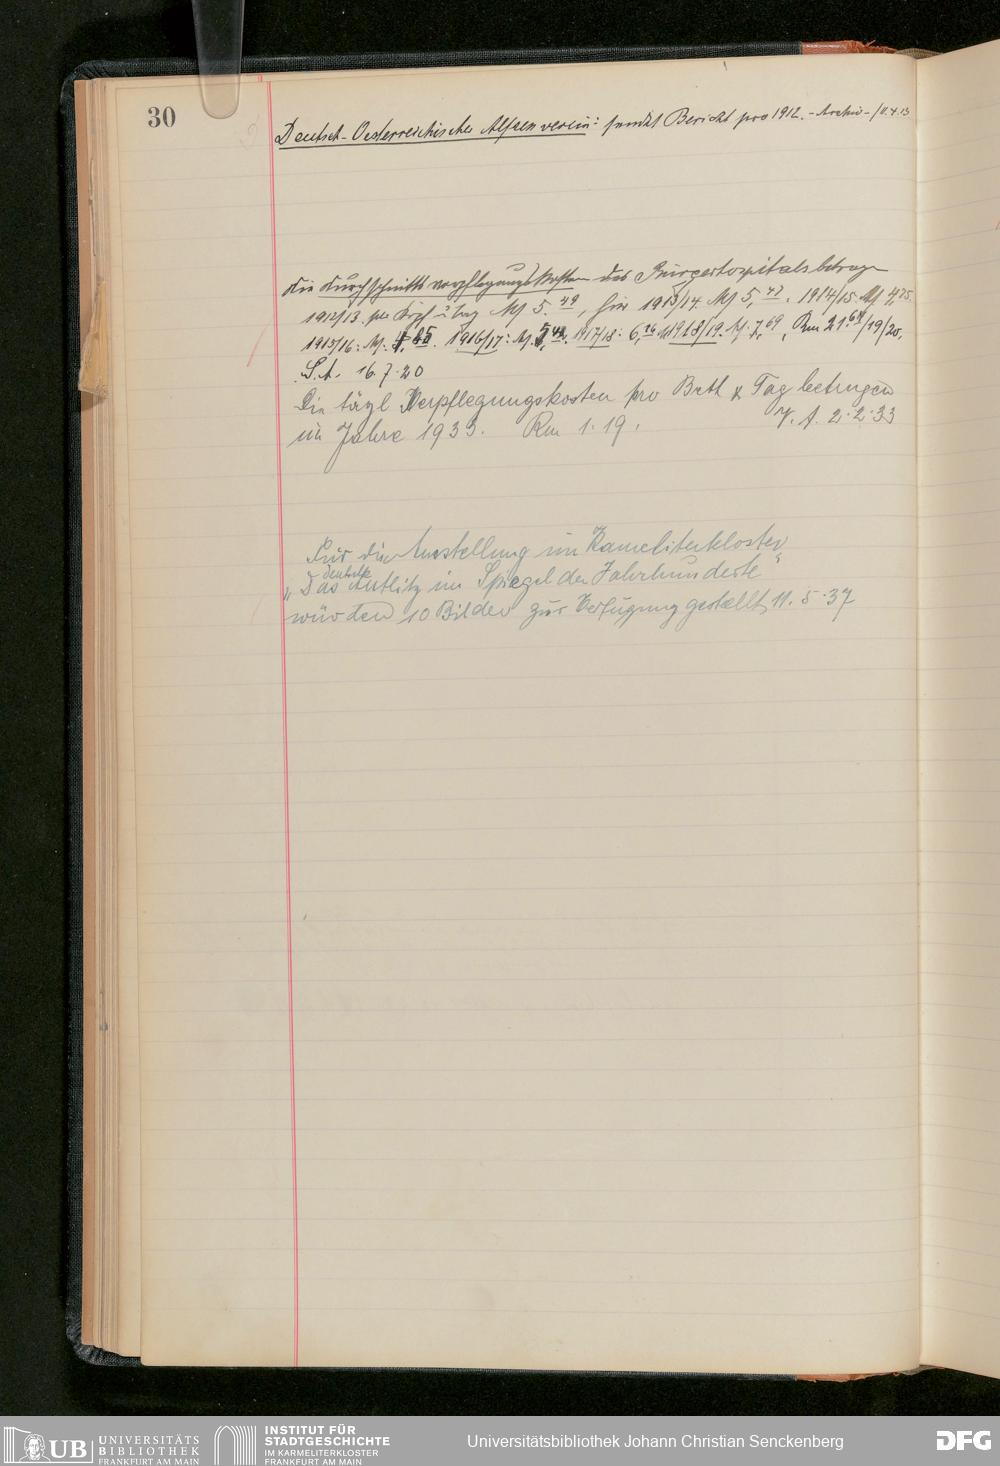 30
Deutsch-Oesterreichischer Alpenverein: sendet Bericht pro 1912. - Archiv - /11.4.13
Die Durchschnittsverpflegungskosten des Bürgerhospitals betragen
1912/13 per Kopf u Tag M 5.49, für 1913/14 M 5,47. 1914/15 M 4,75.
1915/16: M. 4,85. 1916/17: M. 5,48. 1917/18: 6,26 1918/19. M. 7,69, Rm 21.64/19/20.
S.A. 16.7.20
Die tägl Verpflegungskosten pro Bett & Tag betrugen
im Jahre 1933. Rm 1.19. V.A. 2.2.33
Für die Ausstellung im Karmeliterkloster
„Das deutsche Antlitz im Spiegel der Jahrhunderte“
würden 10 Bilder zur Verfügung gestellt, 11.5.37
UB UNIVERSITÄTS
BIBLIOTHEK
FRANKFURT AM MAIN
INSTITUT FÜR
STADTGESCHICHTE
IM KARMELITERKLOSTER
FRANKFURT AM MAIN
Universitätsbibliothek Johann Christian Senckenberg
DFG